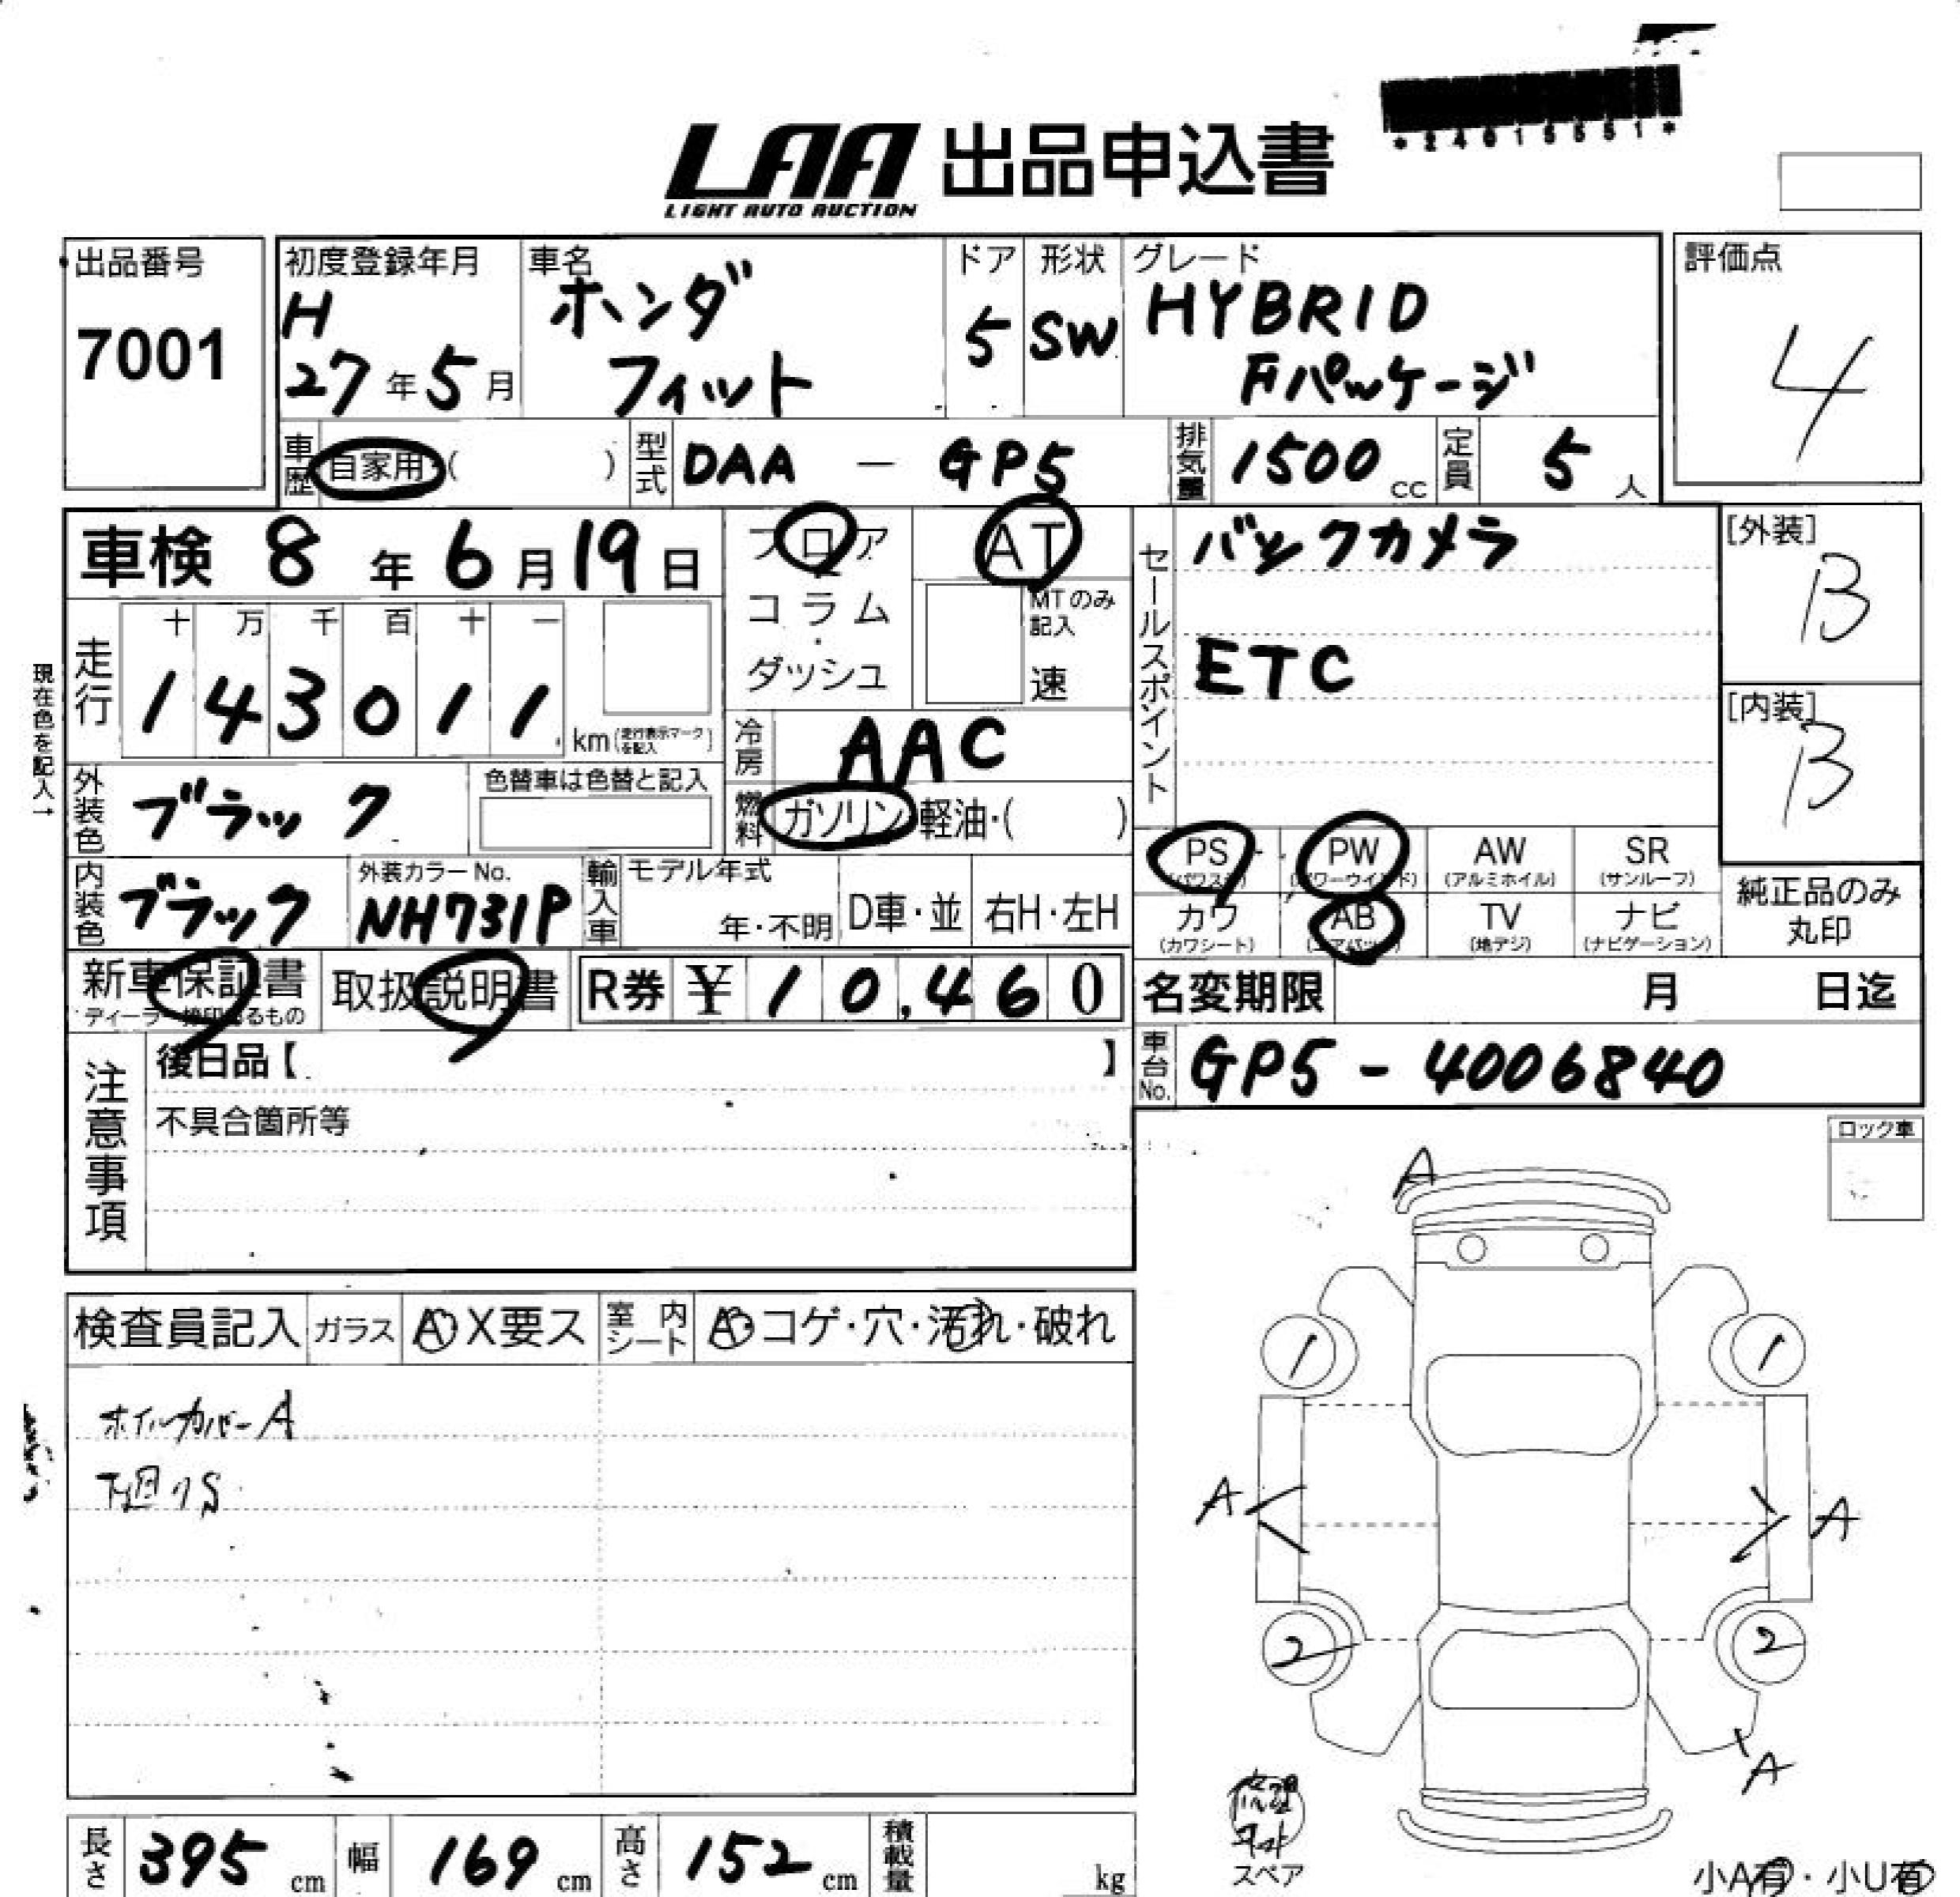 LAA 出品申込書
LIGHT AUTO AUCTION
出品番号
7001
初度登録年月
H
27年5月
車名
ホンダ
フィット
ドア
5
形状
SW
グレード
HYBRID
Fパッケージ
評価点
4
車歴 自家用・( )
型式 DAA - GP5
排気量 1500 cc
定員 5 人
車検 8年6月19日
フロア
コラム
ダッシュ
AT
MTのみ
記入
速
セールスポイント
バックカメラ
ETC
[外装]
B
[内装]
B
現在色を記入→
走行
十 万 千 百 十 一
1 4 3 0 1 1 km (走行表示マークを記入)
冷房 AAC
燃料 ガソリン・軽油・( )
外装色 ブラック
色替車は色替と記入
内装色 ブラック
外装カラーNo.
NH731P
輸入車
モデル年式
年・不明
D車・並
右H・左H
PS (パワステ)
PW (パワーウインド)
AW (アルミホイル)
SR (サンルーフ)
カワ (カワシート)
AB (エアバック)
TV (地デジ)
ナビ (ナビゲーション)
純正品のみ
丸印
新車保証書
ディーラー捺印あるもの
取扱説明書
R券 ¥ 1 0,4 6 0
名変期限 月 日迄
車台No. GP5-4006840
注意事項
後日品【 】
不具合箇所等
ロック車
A
検査員記入
ガラス A・X要ス
室内シート A・コゲ・穴・汚れ・破れ
ホイルカバーA
下廻りS
1 1
A A
2 2
A
スペア
小A有・小U有
長さ 395 cm
幅 169 cm
高さ 152 cm
積載量 kg